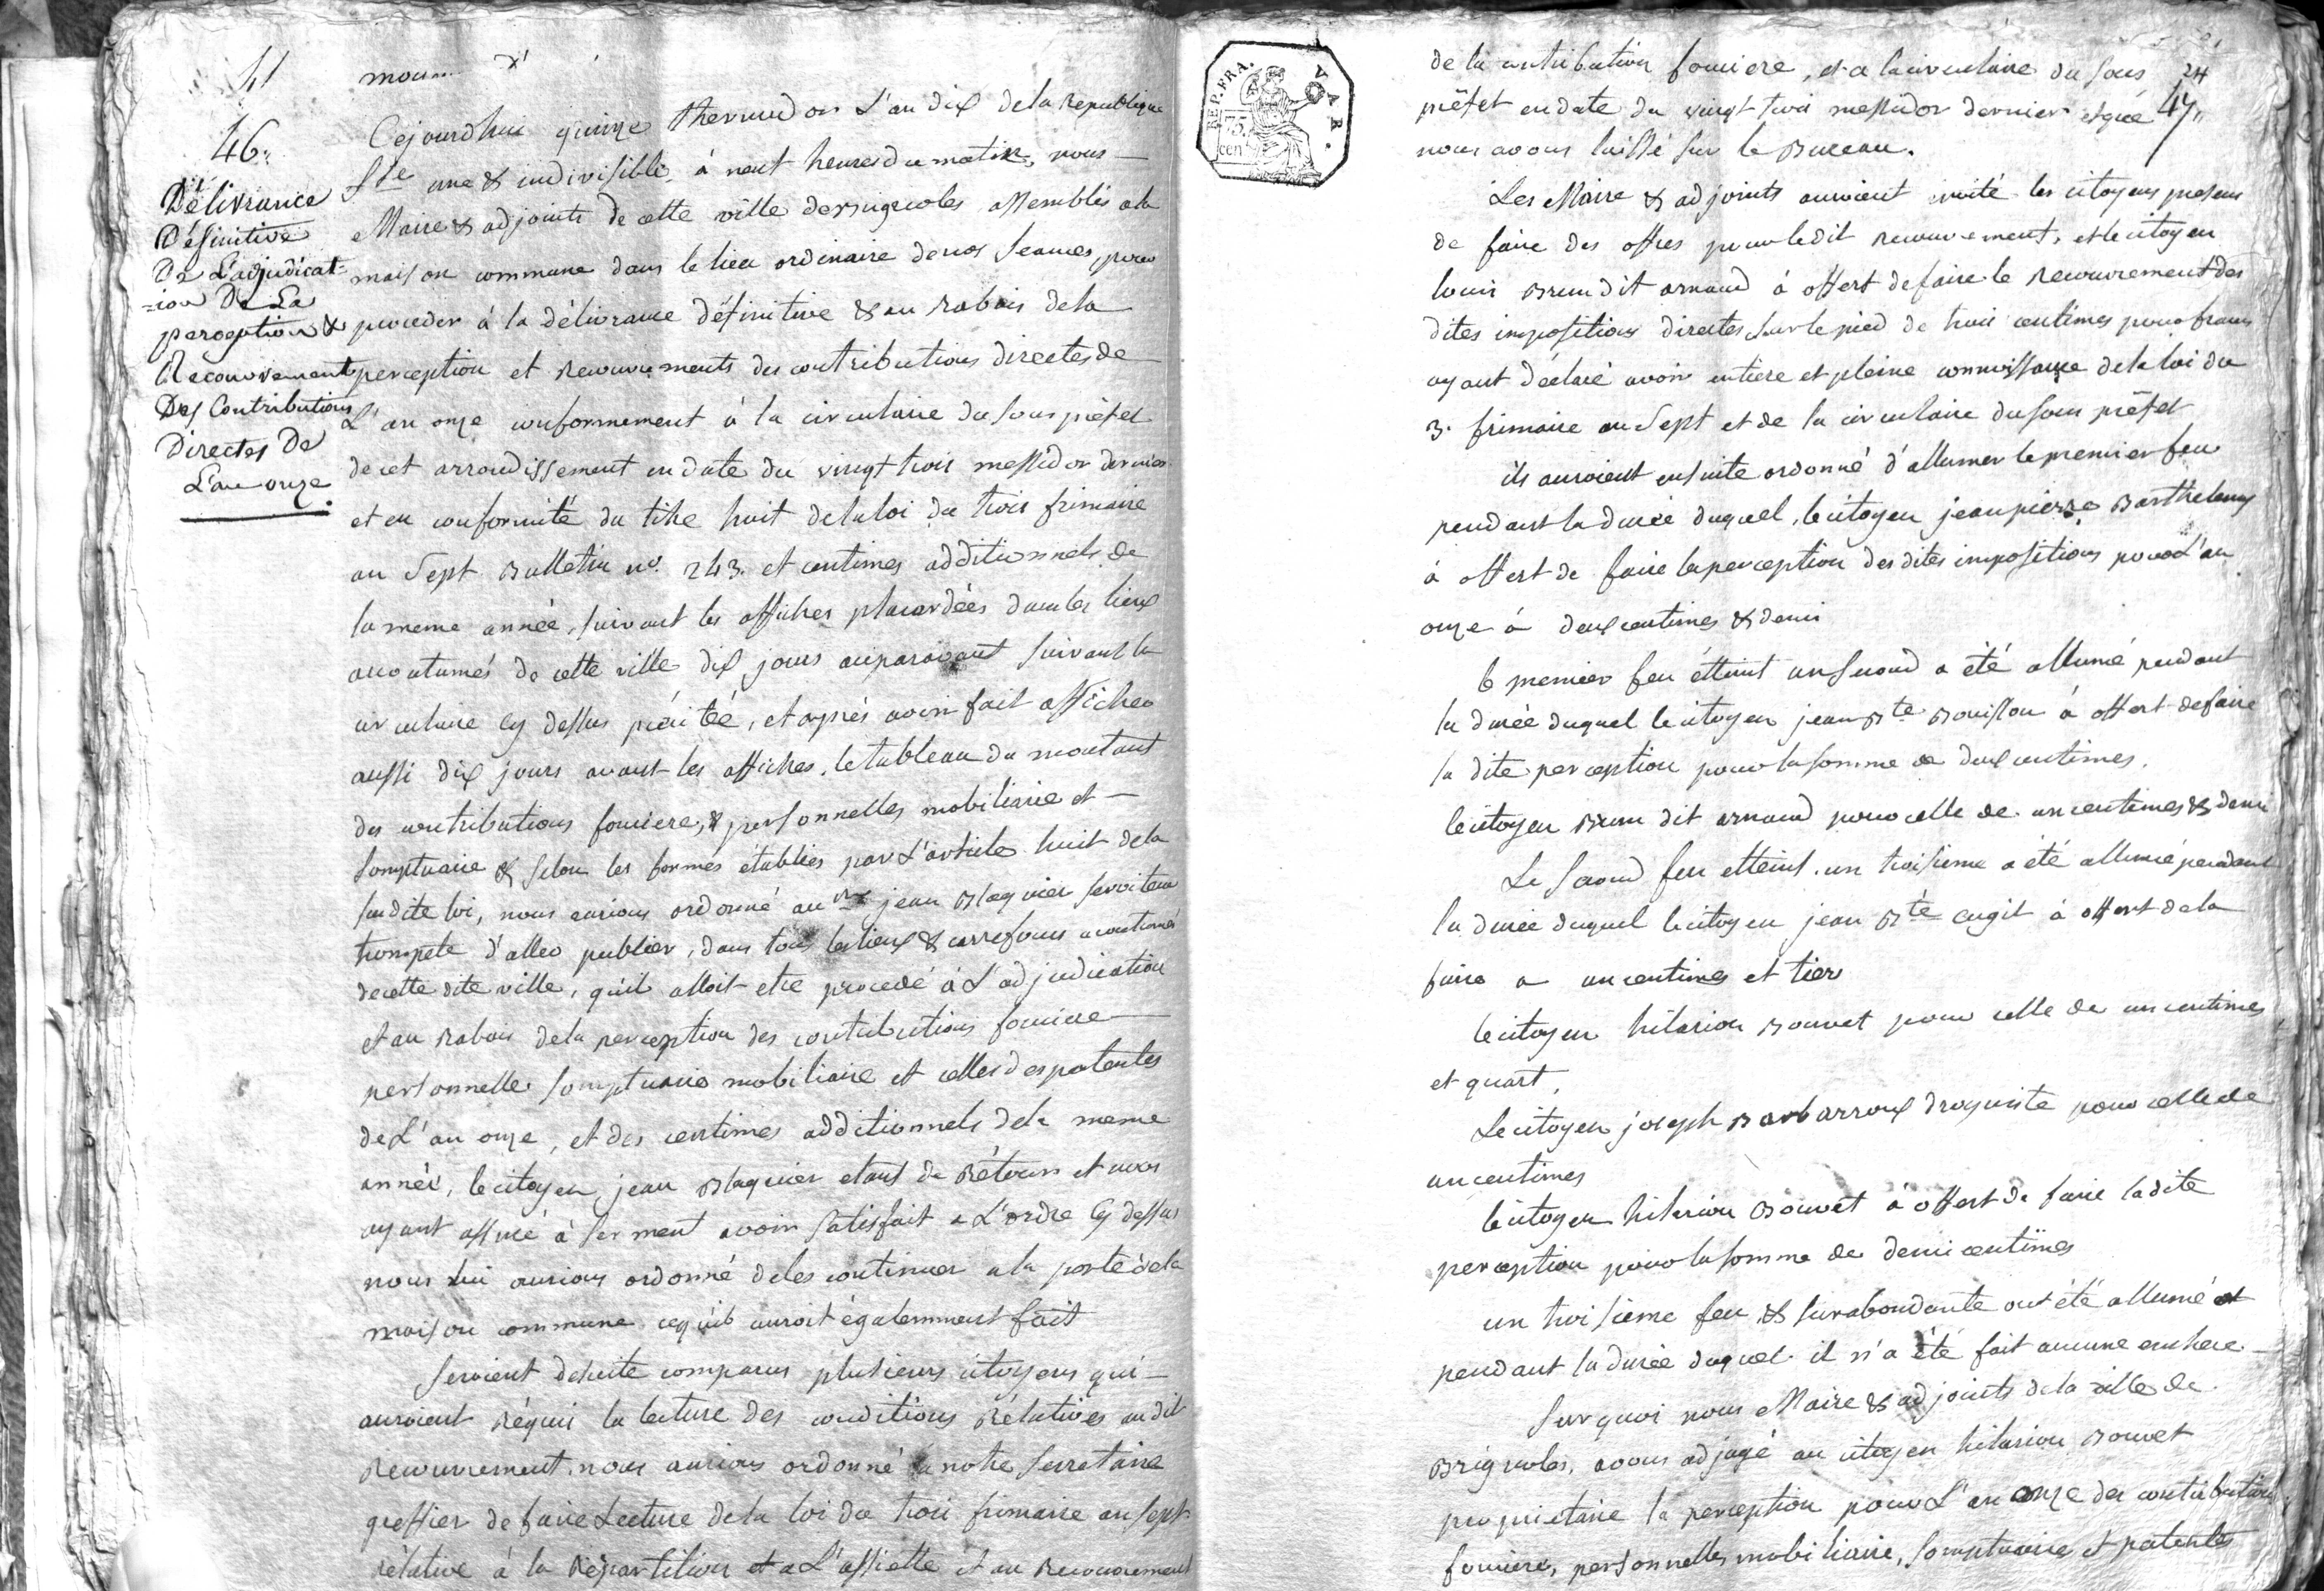 41
46.
Délivrance
Définitive
De L'adjudicat=
=ion De La
perception &
Recouvrement
Des Contributions
Directes De
L'an onze
Cejourdhui quinze thermidor L'an dix de la Republique
fse une & indivisible, à neuf heures du matin, nous
Maire & adjoints de cette ville de Brignoles assemblés a la
maison commune dans le lieu ordinaire de nos seances, pour
proceder à la délivrance définitive & au Rabais de la
perception et recouvrements des contributions directes de
L'an onze conformement à la circulaire du sous préfet
de cet arrondissement en date du vingt trois messidor dernier
et en conformité du titre huit de la loi du trois frimaire
an sept Bulletin n° 243. et centimes additionnels de
la meme année, suivant les affiches placardées dans les lieux
accoutumés de cette ville dix jours auparavant suivant la
circulaire cy dessus précitée, et après avoir fait afficher
aussi dix jours avant les affiches, le tableau du montant
des contributions fonciere, & personnelles mobiliaire et
somptuaire & selon les formes établies par L'article huit de la
susdite loi, nous aurions ordonné au jean Blaquier serviteur
trompete d'aller publier, dans tous les lieux & carrefours accoutumés
de cette dite ville, qu'il alloit etre procedé à L'adjudication
et au Rabais de la perception des contributions fonciere
personnelle somptuaire mobiliaire et celles des patentes
de L'an onze, et des centimes additionnels de la meme
année, le citoyen jean Blaquier etant de Rétour et nous
ayant assuré à serment avoir satisfait a L'ordre cy dessus
nous lui aurions ordonné de les continuer a la porte de la
maison commune ce qu'il auroit égalemment fait
seroient de suite comparus plusieurs citoyens qui
auroient Réquis la lecture des conditions Rélatives au dit
Recouvrement. nous aurions ordonné a notre secretaire
greffier de faire Lecture de la loi du trois frimaire an sept
rélative à la Répartition et a L'assiette et au Recouvrement
REP. FRA.
VAR.
75.
cen
24
47.
de la contribution fonciere, et a la circulaire du sous
préfet en date du vingt trois messidor dernier et que
nous avons laissé sur le Bureau.
Les Maire & adjoints auroient invité les citoyens presens
de faire des offres pour le dit recouvrement, et le citoyen
louis Brun dit arnaud à offert de faire le Recouvrement des
dites impositions directes sur le pied de trois centimes pour franc
ayant déclaré avoir entiere et pleine connoissance de la loi du
3. frimaire an sept et de la circulaire du sous préfet
ils auroient ensuite ordonné d'allumer le premier feu
pendant la durée duquel, le citoyen jean pierre Barthelemy
à offert de faire la perception des dites impositions pour L'an
onze à deux centimes & demi
le premier feu étteint un second a été allumé pendant
la durée duquel le citoyen jean Bte Bouisson à offert de faire
la dite perception pour la somme de deux centimes.
le citoyen Brun dit arnaud pour celle de un centimes & demi
Le second feu etteint. un troisieme a été allumé pendant
la durée duquel le citoyen jean Bte augil à offert de la
faire a un centimes et tier
le citoyen hilarion Bouvet pour celle de un centimes
et quart,
Le citoyen joseph Barbarroux droguiste pour celle de
un centimes
le citoyen hilarion Bouvet à offert de faire la dite
perception pour la somme de demi centimes
un troisieme feu & surabondante ont été allumé et
pendant la durée duquel il n'a été fait aucune enchere
sur quoi nous Maire & adjoints de la ville de
Brignoles, avons adjugé au citoyen hilarion Bouvet
proprietaire la perception pour L'an onze des contributions
fonciere, personnelles mobiliaire, somptuaires et patentes